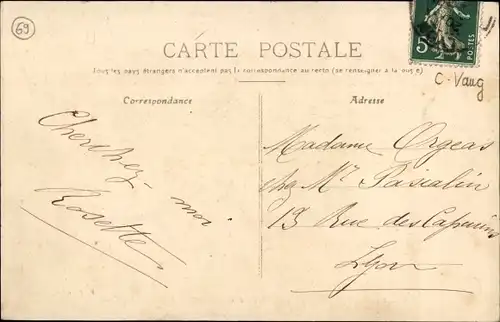 69
CARTE POSTALE
Tous les pays étrangers n'acceptent pas la correspondance au recto (se renseigner à la poste)
5
POSTES
C-Vaug
Correspondance
Adresse
Cherchez-moi
Rosette
Madame Orgeas
chez Mr Pascalin
13 Rue des Capucins
Lyon